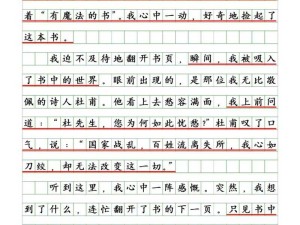 着“有魔法的书”。我心中一动，好奇地捡起了
这本书。
我迫不及待地翻开书页，瞬间，我被吸入
了书中的世界。眼前出现的，是那位我无比敬
佩的诗人杜甫。他看上去愁容满面，我上前问
道：“杜先生，您为何如此忧愁？”杜甫叹了口
气，说：“国家战乱，百姓流离失所，我心如
刀绞，却无法改变这一切。”
听到这里，我心中一阵感慨。突然，我想
到了什么，连忙翻开了书的下一页。只见书中